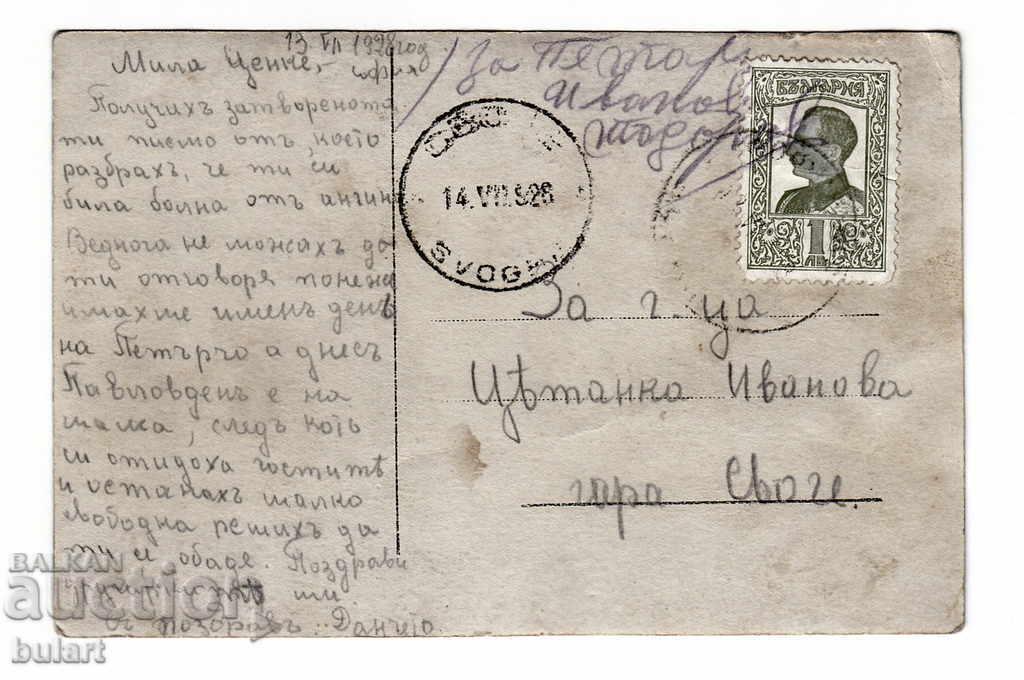 13 VII 1928 год
София
Мила Ценке,
Получихъ затворената
ти писмо отъ, което
разбрахъ, че ти си
била болна отъ ангин
Веднога не можахъ да
ти отговоря понеже
имахме именъ день
на Петърчо а днесъ
Павловденъ е на
малка, следъ като
си отидоха гоститѣ
и останахъ малко
свободна решихъ да
ти се обаде. Поздрави
ти.
поздравъ: Данчето.
За Петъръ
Иванов
Тодоров
14.VII.928
SVOGUÉ
БЪЛГАРИЯ
1
ЛВ
За г-ца
Цѣтанка Иванова
гара Своге.
BALKAN
auction
bulart